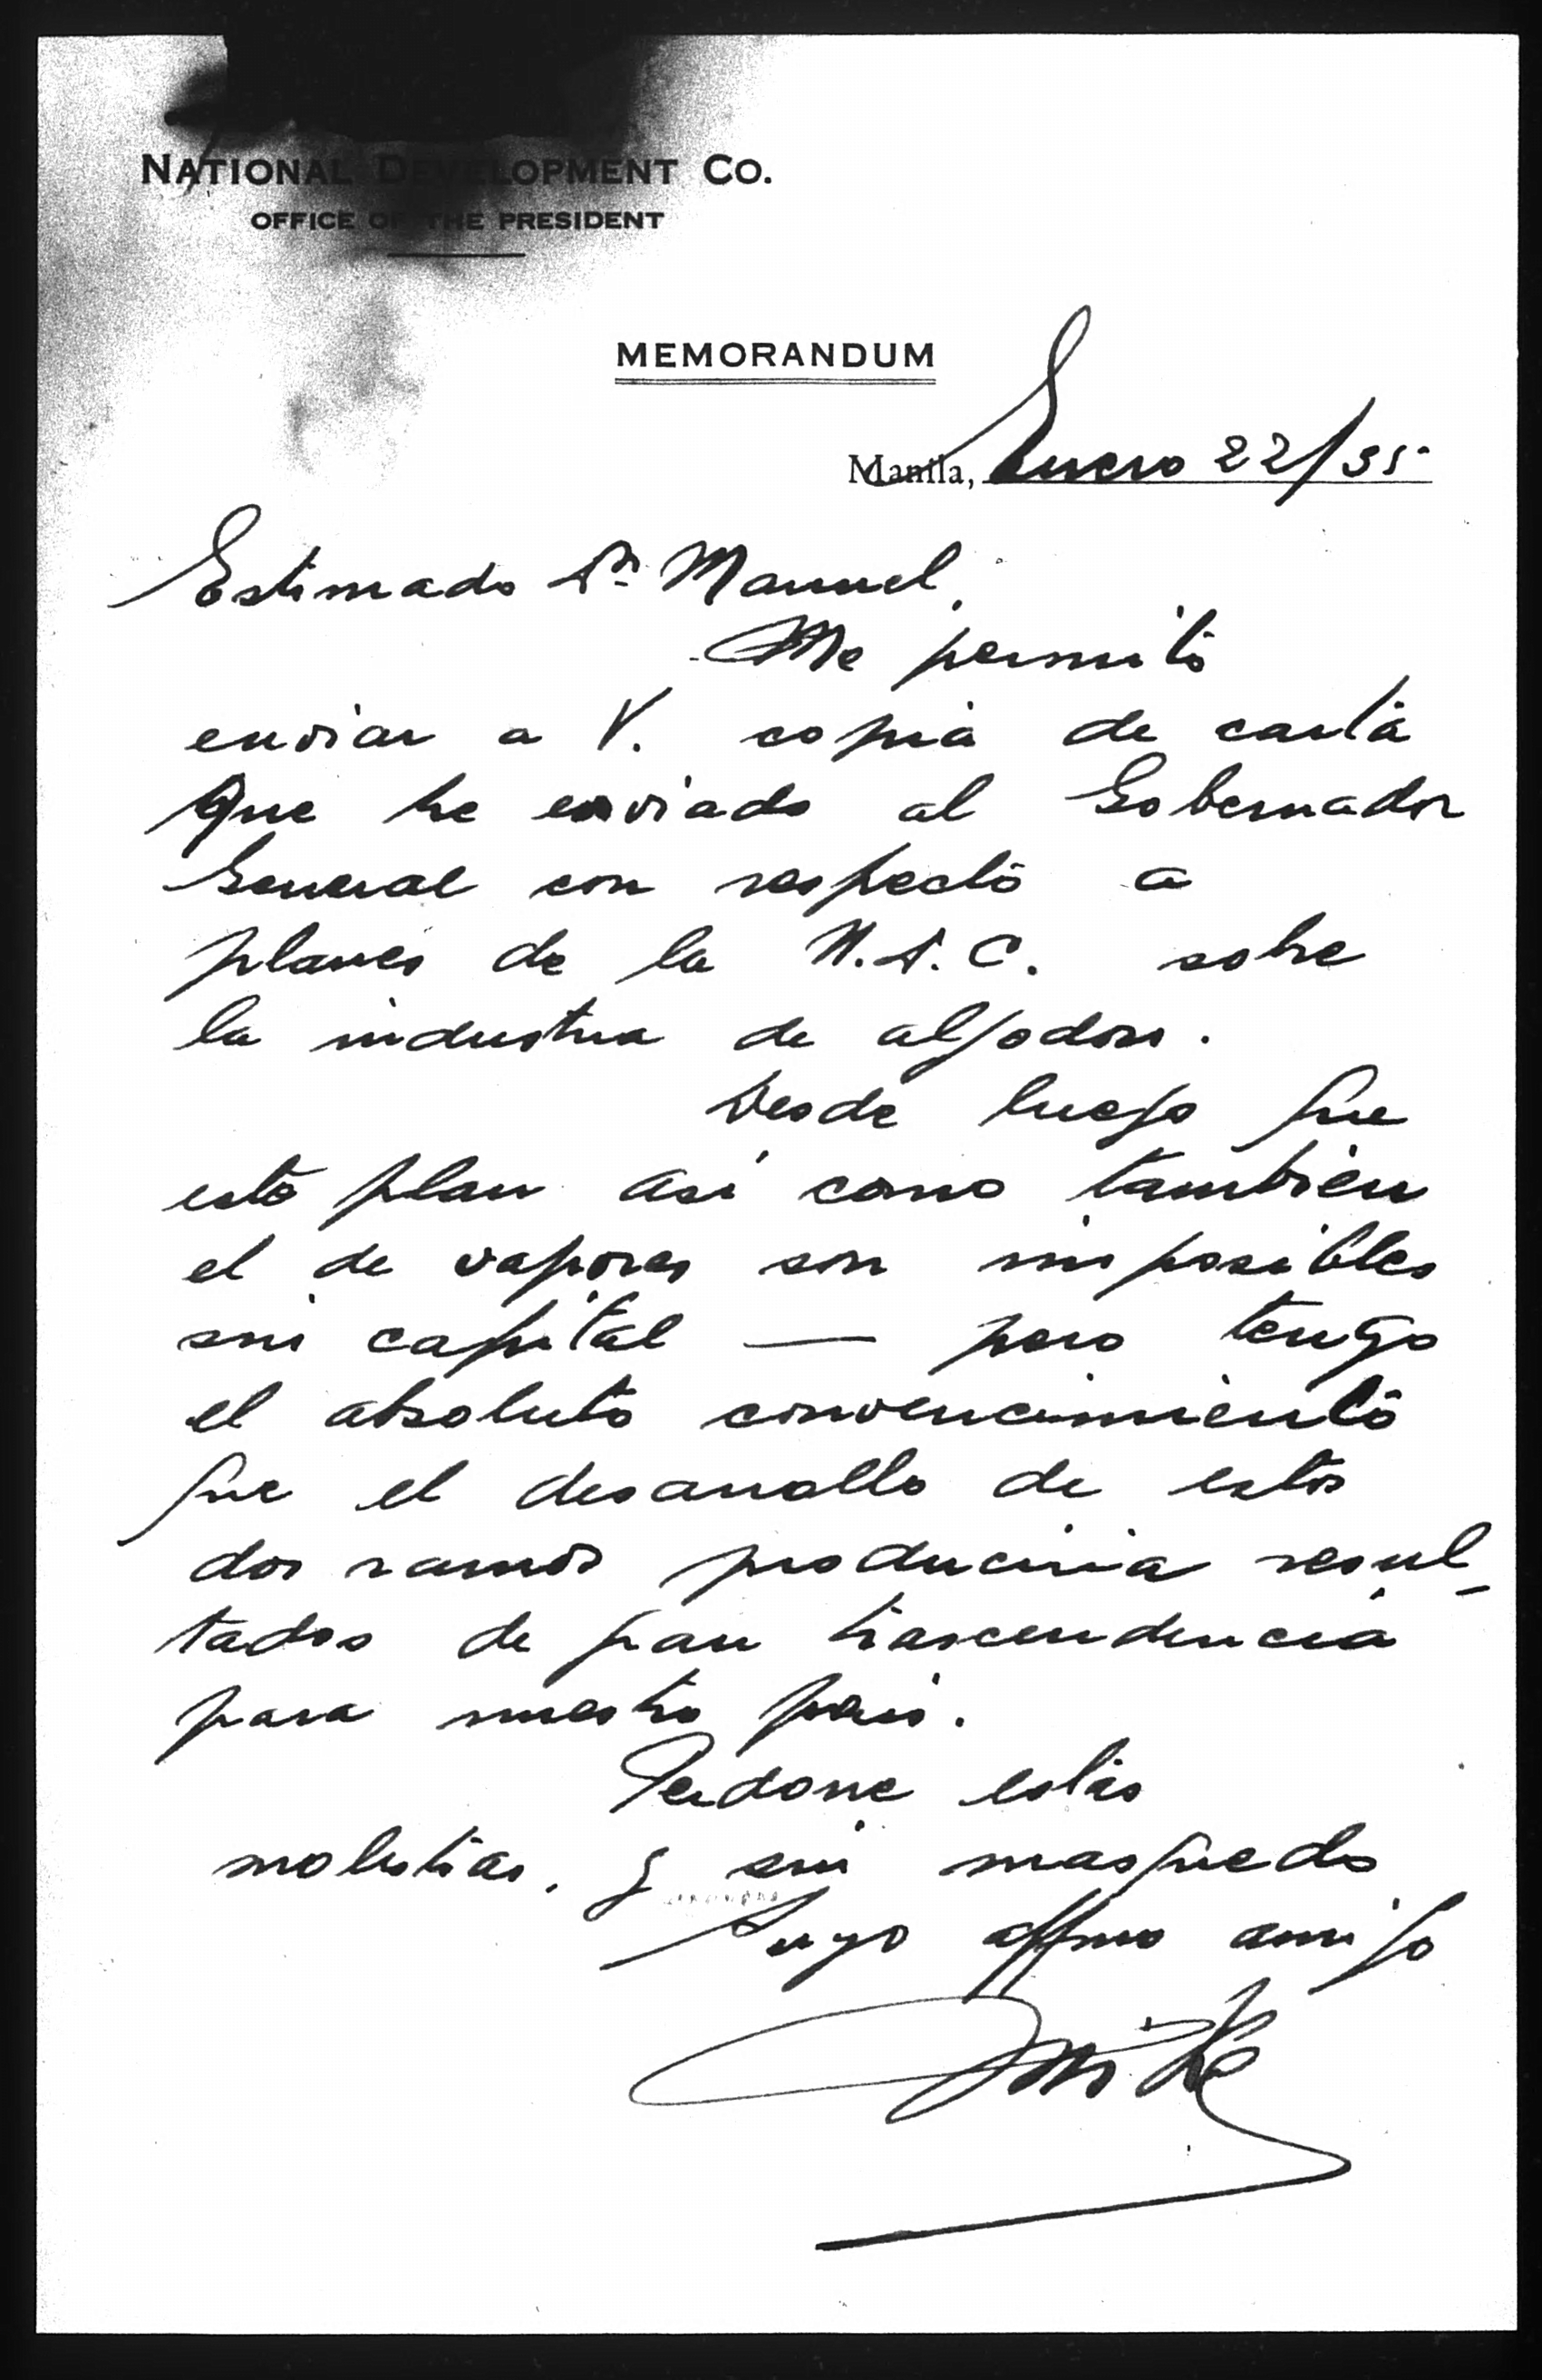 NATIONAL DEVELOPMENT CO.
OFFICE OF THE PRESIDENT
MEMORANDUM
Manila, Enero 22/35
Estimado Dn Manuel,
Me permito
enviar a V. copia de carta
que he enviado al Gobernador
General con respecto a
planes de la N.D.C. sobre
la industria de algodon.
Desde luego que
este plan así como tambien
el de vapores son imposibles
sin capital — pero tengo
el absoluto convencimiento
que el desarrollo de estos
dos ramos produciria resul-
tados de gran trascendencia
para nuestro pais.
Perdone estas
molestias, y sin mas quedo
Suyo affmo amigo
Mike